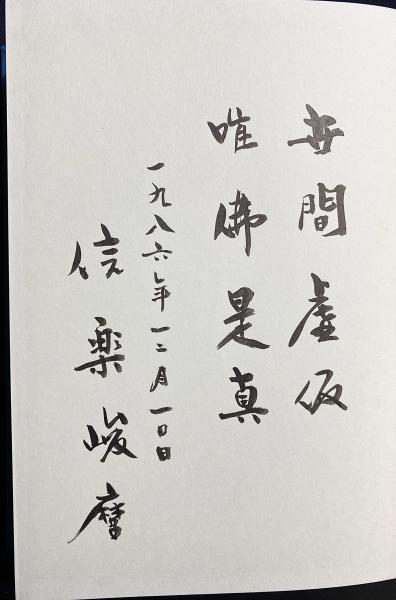 世間虚仮
唯佛是真
一九八六年一二月一〇日
信楽峻麿